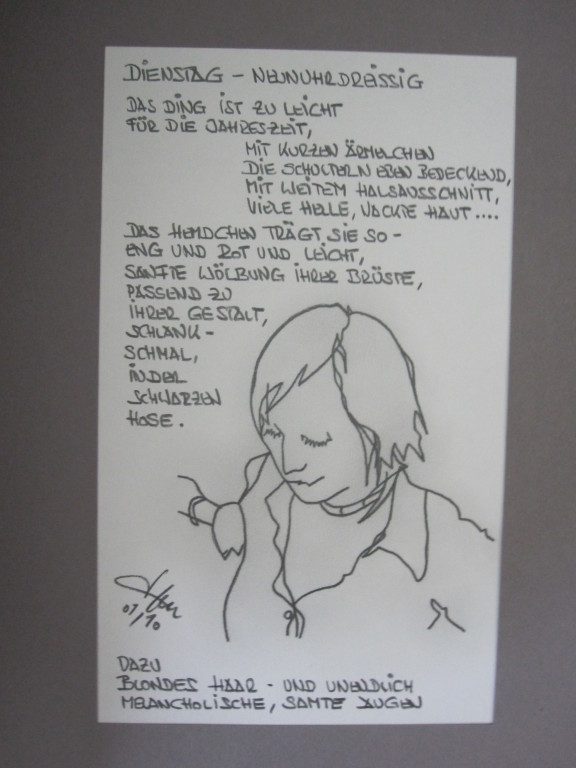 DIENSTAG - NEUNUHRDREISSIG
DAS DING IST ZU LEICHT
FÜR DIE JAHRESZEIT,
MIT KURZEN ÄRMELCHEN
DIE SCHULTERN EBEN BEDECKEND,
MIT WEITEM HALSAUSSCHNITT,
VIELE HELLE, NACKTE HAUT ....
DAS HEMDCHEN TRÄGT SIE SO -
ENG UND ROT UND LEICHT,
SANFTE WÖLBUNG IHRER BRÜSTE,
PASSEND ZU
IHRER GESTALT,
SCHLANK -
SCHMAL,
IN DER
SCHWARZEN
HOSE.
01/10
DAZU
BLONDES HAAR - UND UNENDLICH
MELANCHOLISCHE, SAMTE AUGEN